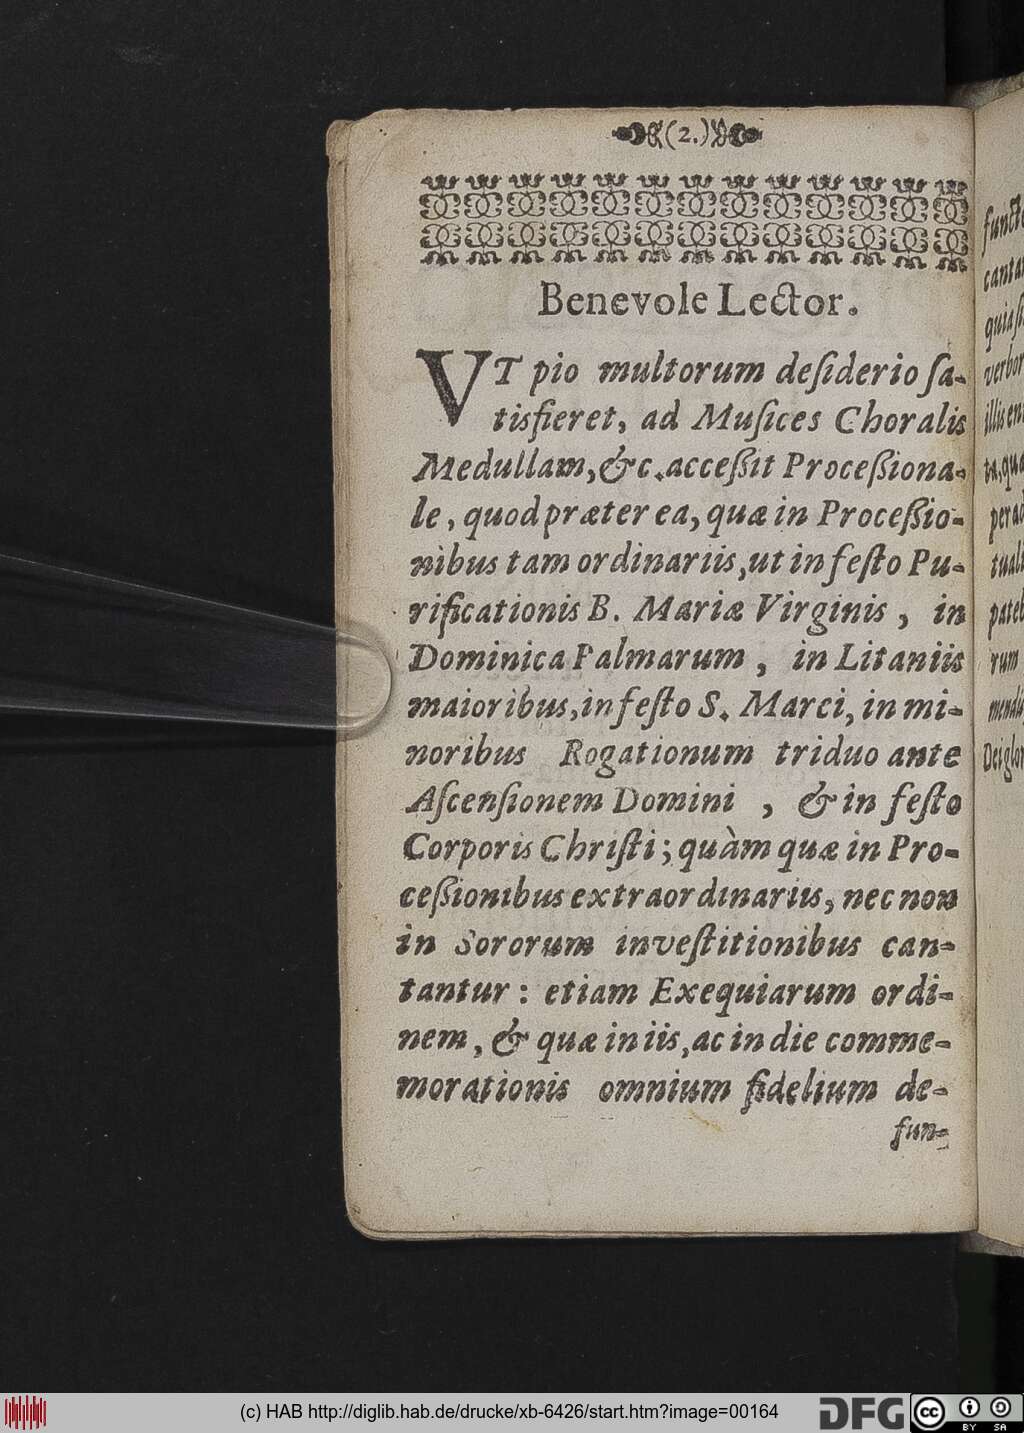 (2.)
Benevole Lector.
VT pio multorum deſiderio ſa-
tisfieret, ad Muſices Choralis
Medullam, &c. acceßit Proceßiona-
le, quod præter ea, quæ in Proceßio-
nibus tam ordinariis, ut in feſto Pu-
rificationis B. Mariæ Virginis, in
Dominica Palmarum, in Litaniis
maioribus, in feſto S. Marci, in mi-
noribus Rogationum triduo ante
Aſcenſionem Domini, & in feſto
Corporis Chriſti; quàm quæ in Pro-
ceßionibus extraordinariis, nec non
in Sororum inveſtitionibus can-
tantur: etiam Exequiarum ordi-
nem, & quæ in iis, ac in die comme-
morationis omnium fidelium de-
fun-
(c) HAB http://diglib.hab.de/drucke/xb-6426/start.htm?image=00164
DFG
cc
BY SA